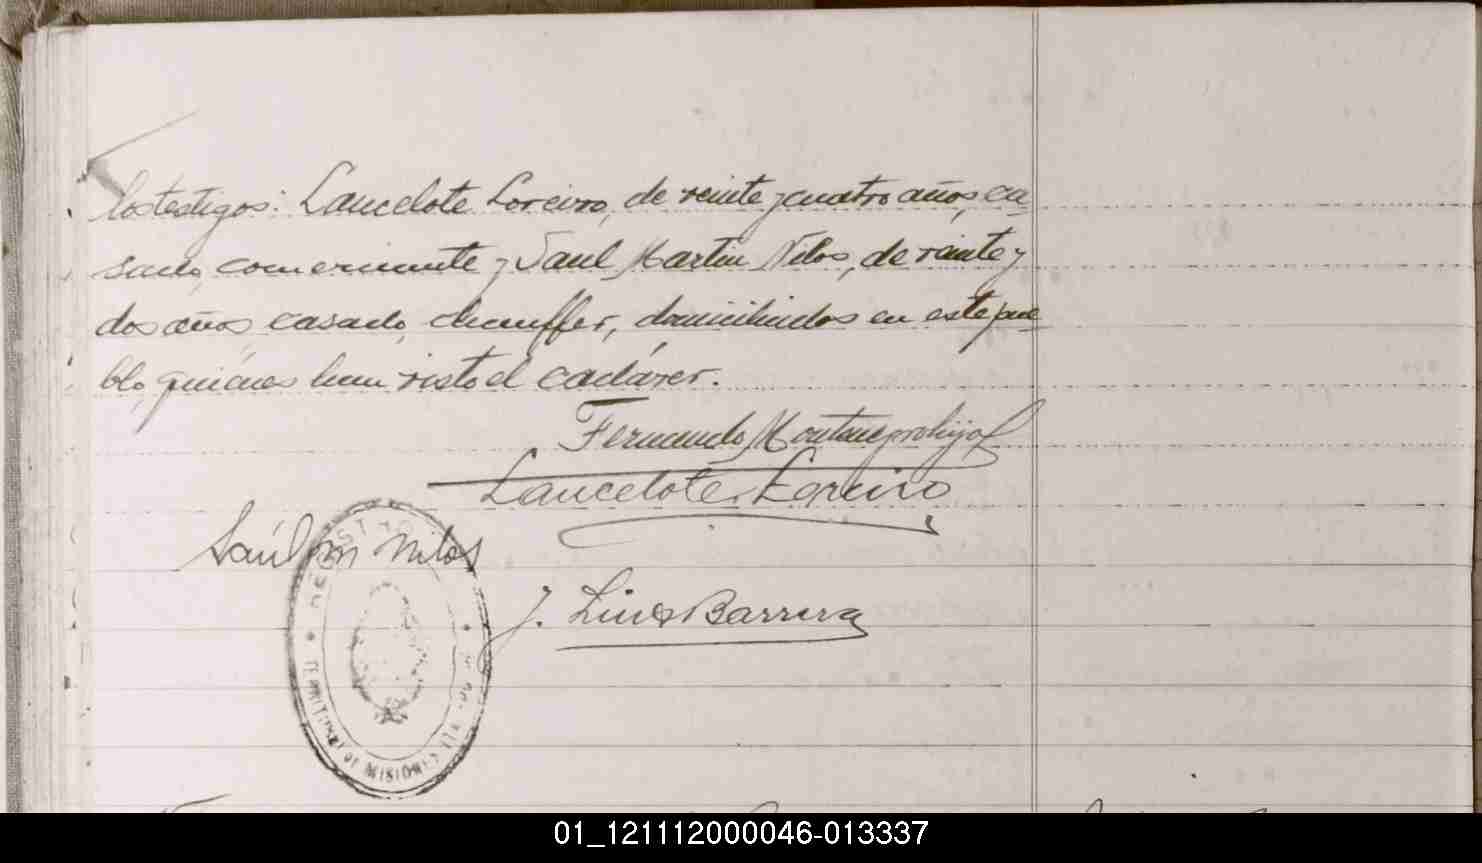 los testigos: Lancelote Loreiro, de veinte y cuatro años, ca-
sado, comerciante y Saul Martin Nilos, de veinte y
dos años, casado, chauffer, domiciliados en este pue
blo, quiénes han visto el cadáver.
Fernando
Lancelote Loreiro
Saúl M Nilos
J. Lino Barrera
REGISTRO
TERRITORIO DE MISIONES
01_121112000046-013337